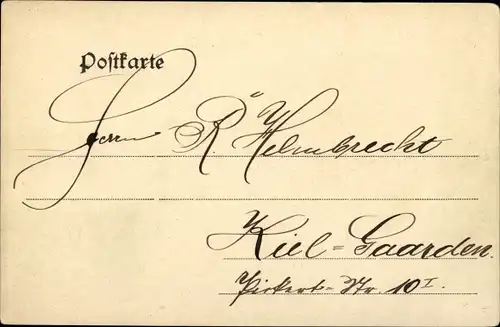 Postkarte
Herrn R. Helmbrecht
Kiel-Gaarden.
Pickert-Str. 10 I.